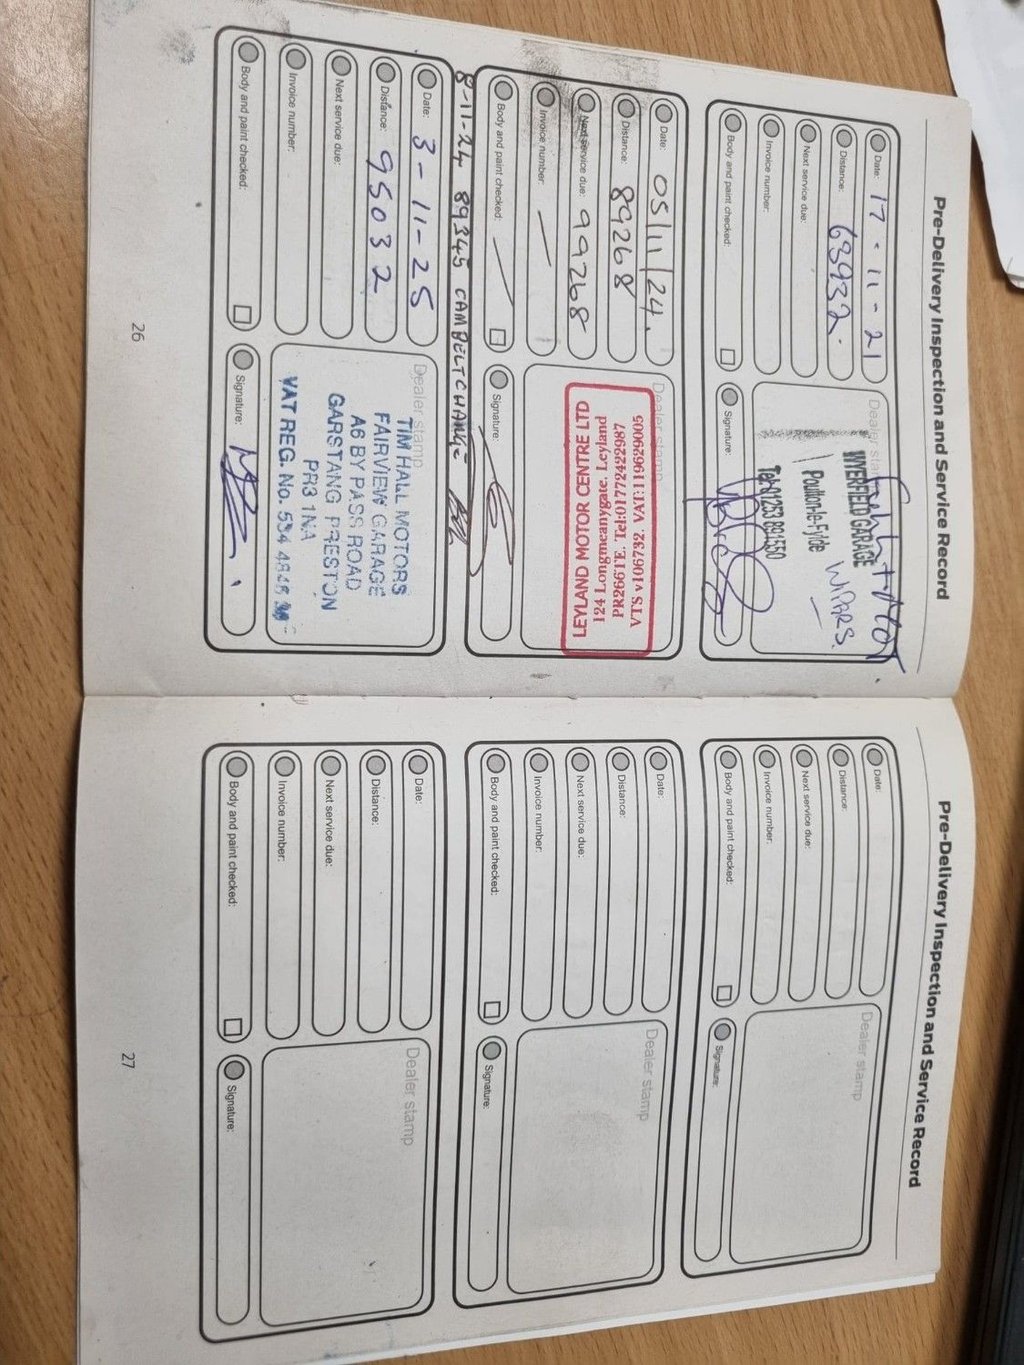 Pre-Delivery Inspection and Service Record
Date: 17-11-21
Distance: 63932.
Next service due:
Invoice number:
Body and paint checked:
Dealer stamp
WYERFIELD GARAGE
Poulton-le-Fylde
Tel: 01253 891550
Signature:
Date: 05/11/24.
Distance: 89268
Next service due: 99268
Invoice number: —
Body and paint checked: —
Dealer stamp
LEYLAND MOTOR CENTRE LTD
124 Longmeanygate. Leyland
PR266TE. Tel:01772422987
VTS v106732. VAT:119629005
Signature:
8-11-24 89345 CAMBELT CHANGE
Date: 3-11-25
Distance: 95032
Next service due:
Invoice number:
Body and paint checked:
Dealer stamp
TIM HALL MOTORS
FAIRVIEW GARAGE
A6 BY PASS ROAD
GARSTANG PRESTON
PR3 1NA
VAT REG. No. 534
Signature:
26
Pre-Delivery Inspection and Service Record
Date:
Distance:
Next service due:
Invoice number:
Body and paint checked:
Dealer stamp
Signature:
Date:
Distance:
Next service due:
Invoice number:
Body and paint checked:
Dealer stamp
Signature:
Date:
Distance:
Next service due:
Invoice number:
Body and paint checked:
Dealer stamp
Signature:
27